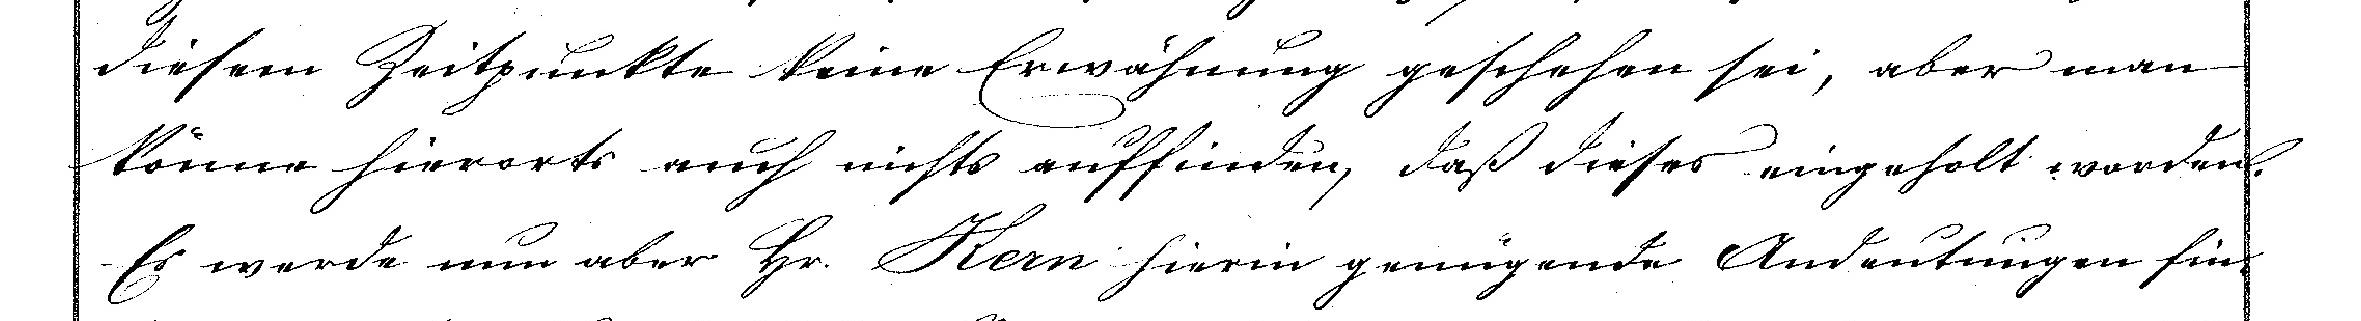 diesem Zeitpunkte keine Erwähnung geschehen sei, aber man
könne hierorts auch nichts auffinden, daß dieses eingeholt worden.
Es werde nun aber Hr. Kern hierin genügende Andeutungen fin-